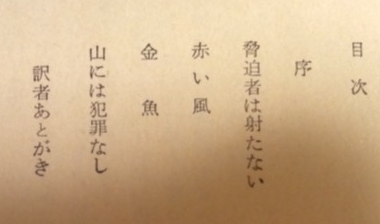 目次
序
脅迫者は射たない
赤い風
金魚
山には犯罪なし
訳者あとがき